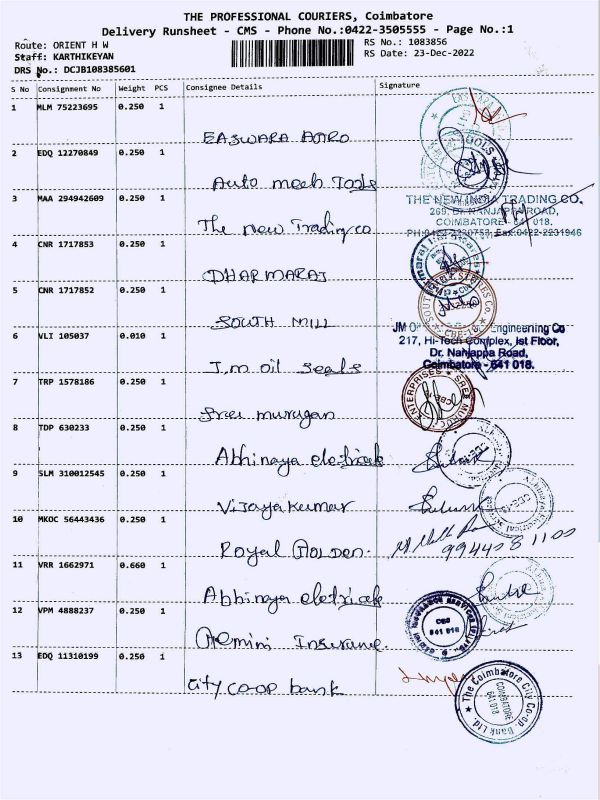 THE PROFESSIONAL COURIERS, Coimbatore
Delivery Runsheet - CMS - Phone No.:0422-3505555 - Page No.:1
Route: ORIENT H W
RS No.: 1083856
Staff: KARTHIKEYAN
RS Date: 23-Dec-2022
DRS No.: DCJB108385601
S No Consignment No Weight PCS Consignee Details Signature
1 MLM 75223695 0.250 1
EASWARA AUTO
2 EDQ 12270849 0.250 1
Auto mech Tools
3 MAA 294942609 0.250 1
The New Trading co
THE NEW INDIA TRADING CO.
269, Dr. NANJAPPA ROAD,
COIMBATORE - 641 018.
PH:0422-2230753 Fax:0422-2231946
4 CNR 1717853 0.250 1
DHARMARAJ
5 CNR 1717852 0.250 1
SOUTH MILL
6 VLI 105037 0.010 1
J.m oil seals
JM Oil Engineering Co
217, Hi-Tech Complex, Ist Floor,
Dr. Nanjappa Road,
Coimbatore - 641 018.
7 TRP 1578186 0.250 1
Sree murugan
ENTERPRISES
8 TDP 630233 0.250 1
Abhinaya eletricals
9 SLM 310012545 0.250 1
Vijayakumar
10 MKOC 56443436 0.250 1
Royal
11 VRR 1662971 0.660 1
Abhinaya eletricals
12 VPM 4888237 0.250 1
Gemini Insurance
CBE
641 018
13 EDQ 11310199 0.250 1
City co-op bank
The Coimbatore City Co-op. Bank Ltd.
COIMBATORE
641 018